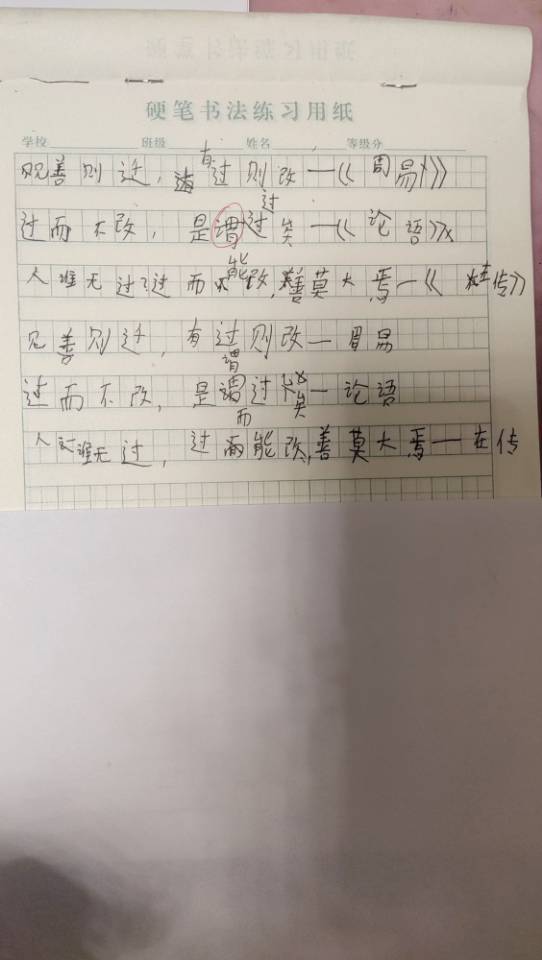 硬笔书法练习用纸
学校 班级 姓名 等级分
见善则迁，有过则改—《周易》
过而不改，是谓过矣—《论语》
人谁无过？过而能改，善莫大焉—《左传》
见善则迁，有过则改—周易
过而不改，是谓过矣—论语
人谁无过，过而能改，善莫大焉—左传